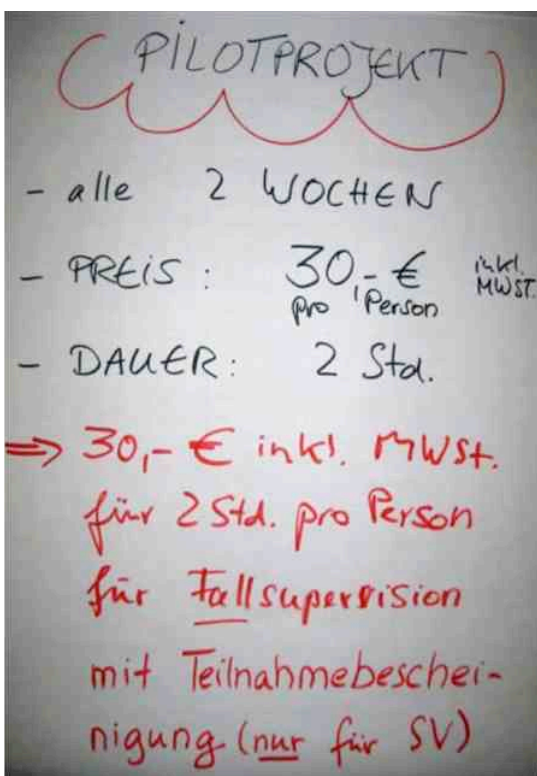 PILOTPROJEKT
- alle 2 WOCHEN
- PREIS: 30,- € inkl. MWST.
pro Person
- DAUER: 2 Std.
⇒ 30,- € inkl. MWSt.
für 2 Std. pro Person
für Fallsupervision
mit Teilnahmebeschei-
nigung (nur für SV)